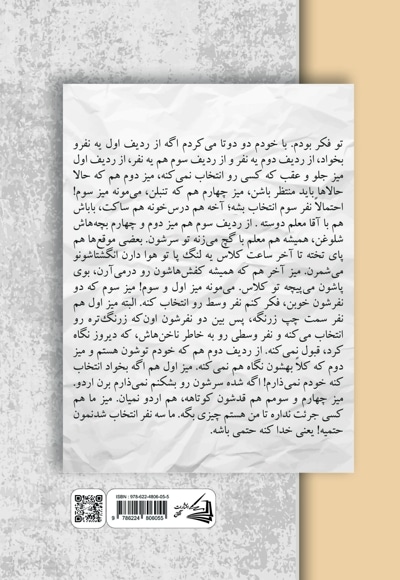 تو فکر بودم. با خودم دو دوتا می‌کردم اگه از ردیف اول یه نفرو
بخواد، از ردیف دوم یه نفر و از ردیف سوم هم یه نفر، از ردیف اول
میز جلو و عقب که کسی رو انتخاب نمی‌کنه، میز دوم هم که حالا
حالاها باید منتظر باشن، میز چهارم هم که تنبلن، می‌مونه میز سوم!
احتمالاً نفر سوم انتخاب بشه؛ آخه هم درس‌خونه هم ساکت، باباش
هم با آقا معلم دوسته . از ردیف سوم هم میز دوم و چهارم بچه‌هاش
شلوغن، همیشه هم معلم با گچ می‌زنه تو سرشون. بعضی موقع‌ها هم
پای تخته تا آخر ساعت کلاس یه لنگ پا تو هوا دارن انگشتاشونو
می‌شمرن. میز آخر هم که همیشه کفش‌هاشون رو درمی‌آرن، بوی
پاشون می‌پیچه تو کلاس. می‌مونه میز اول و سوم! میز سوم که دو
نفرشون خوبن، فکر کنم نفر وسط رو انتخاب کنه. البته میز اول هم
نفر سمت چپ زرنگه، پس بین دو نفرشون اون‌که زرنگ‌تره رو
انتخاب می‌کنه و نفر وسطی رو به خاطر ناخن‌هاش، که دیروز نگاه
کرد، قبول نمی‌کنه. از ردیف دوم هم که خودم توشون هستم و میز
دوم که کلاً بهشون نگاه هم نمی‌کنه. میز اول هم اگه بخواد انتخاب
کنه خودم نمی‌ذارم! اگه شده سرشون رو بشکنم نمی‌ذارم برن اردو.
میز چهارم و سومم هم قدشون کوتاهه، هم اردو نمیان. میز ما هم
کسی جرئت نداره تا من هستم چیزی بگه. ما سه نفر انتخاب شدنمون
حتمیه! یعنی خدا کنه حتمی باشه.
ISBN : 978-622-4806-05-5
9 786224 806055